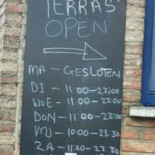 TERRAS
OPEN
MA - GESLOTEN
DI - 11:00-23:00
WOE - 11:00-23:00
DON - 11:00-23:00
VRIJ - 10:00-23:30
ZA - 11:00-23:30